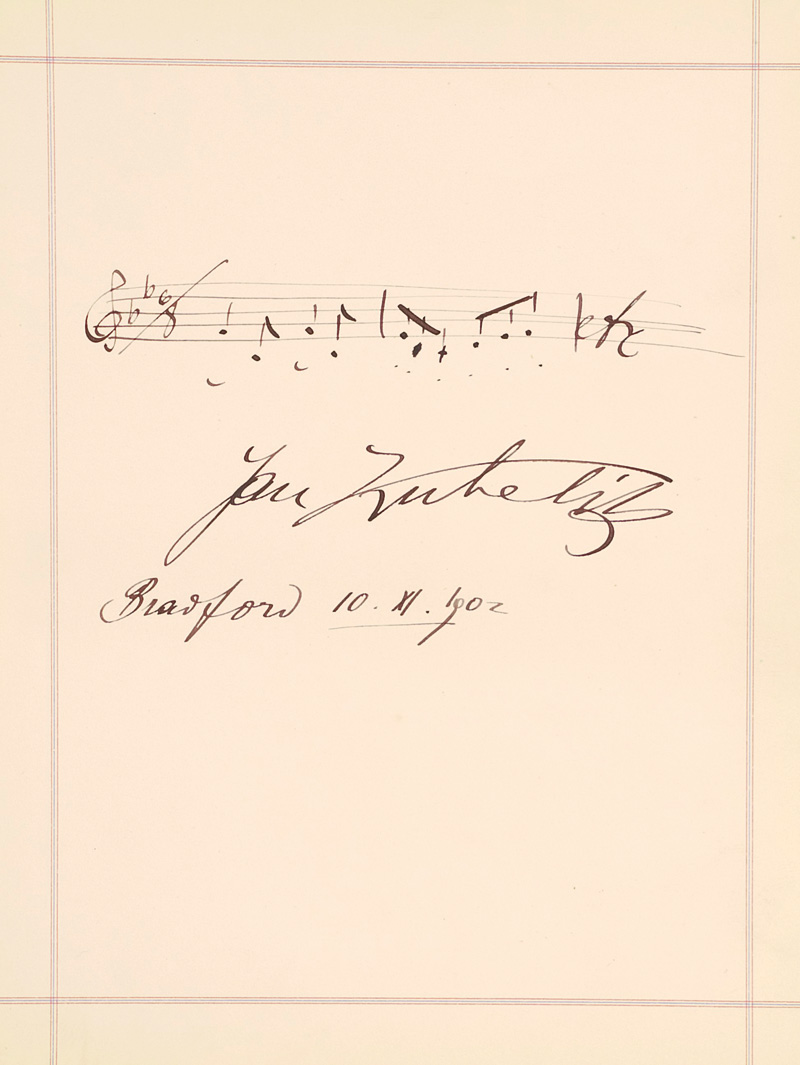 Jan Kubelik
Bradford 10. XI. 1902